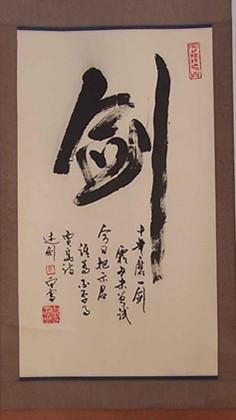 剑
十年磨一剑
霜刃未曾试
今日把示君
谁为不平事
贾岛诗
述剑